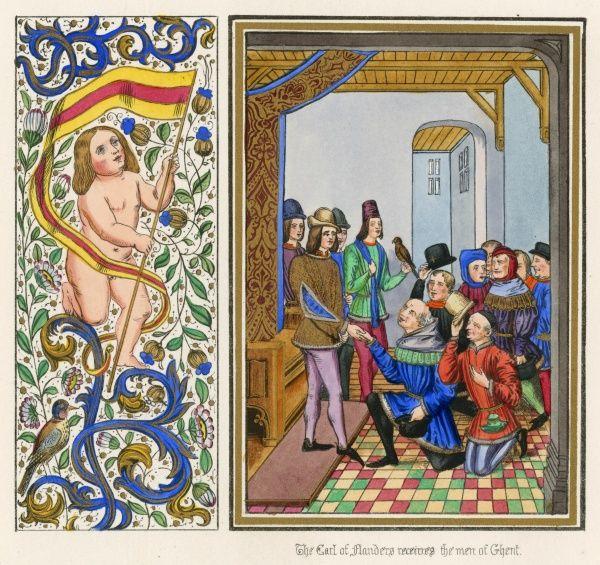 The Earl of Flanders receives the men of Ghent.